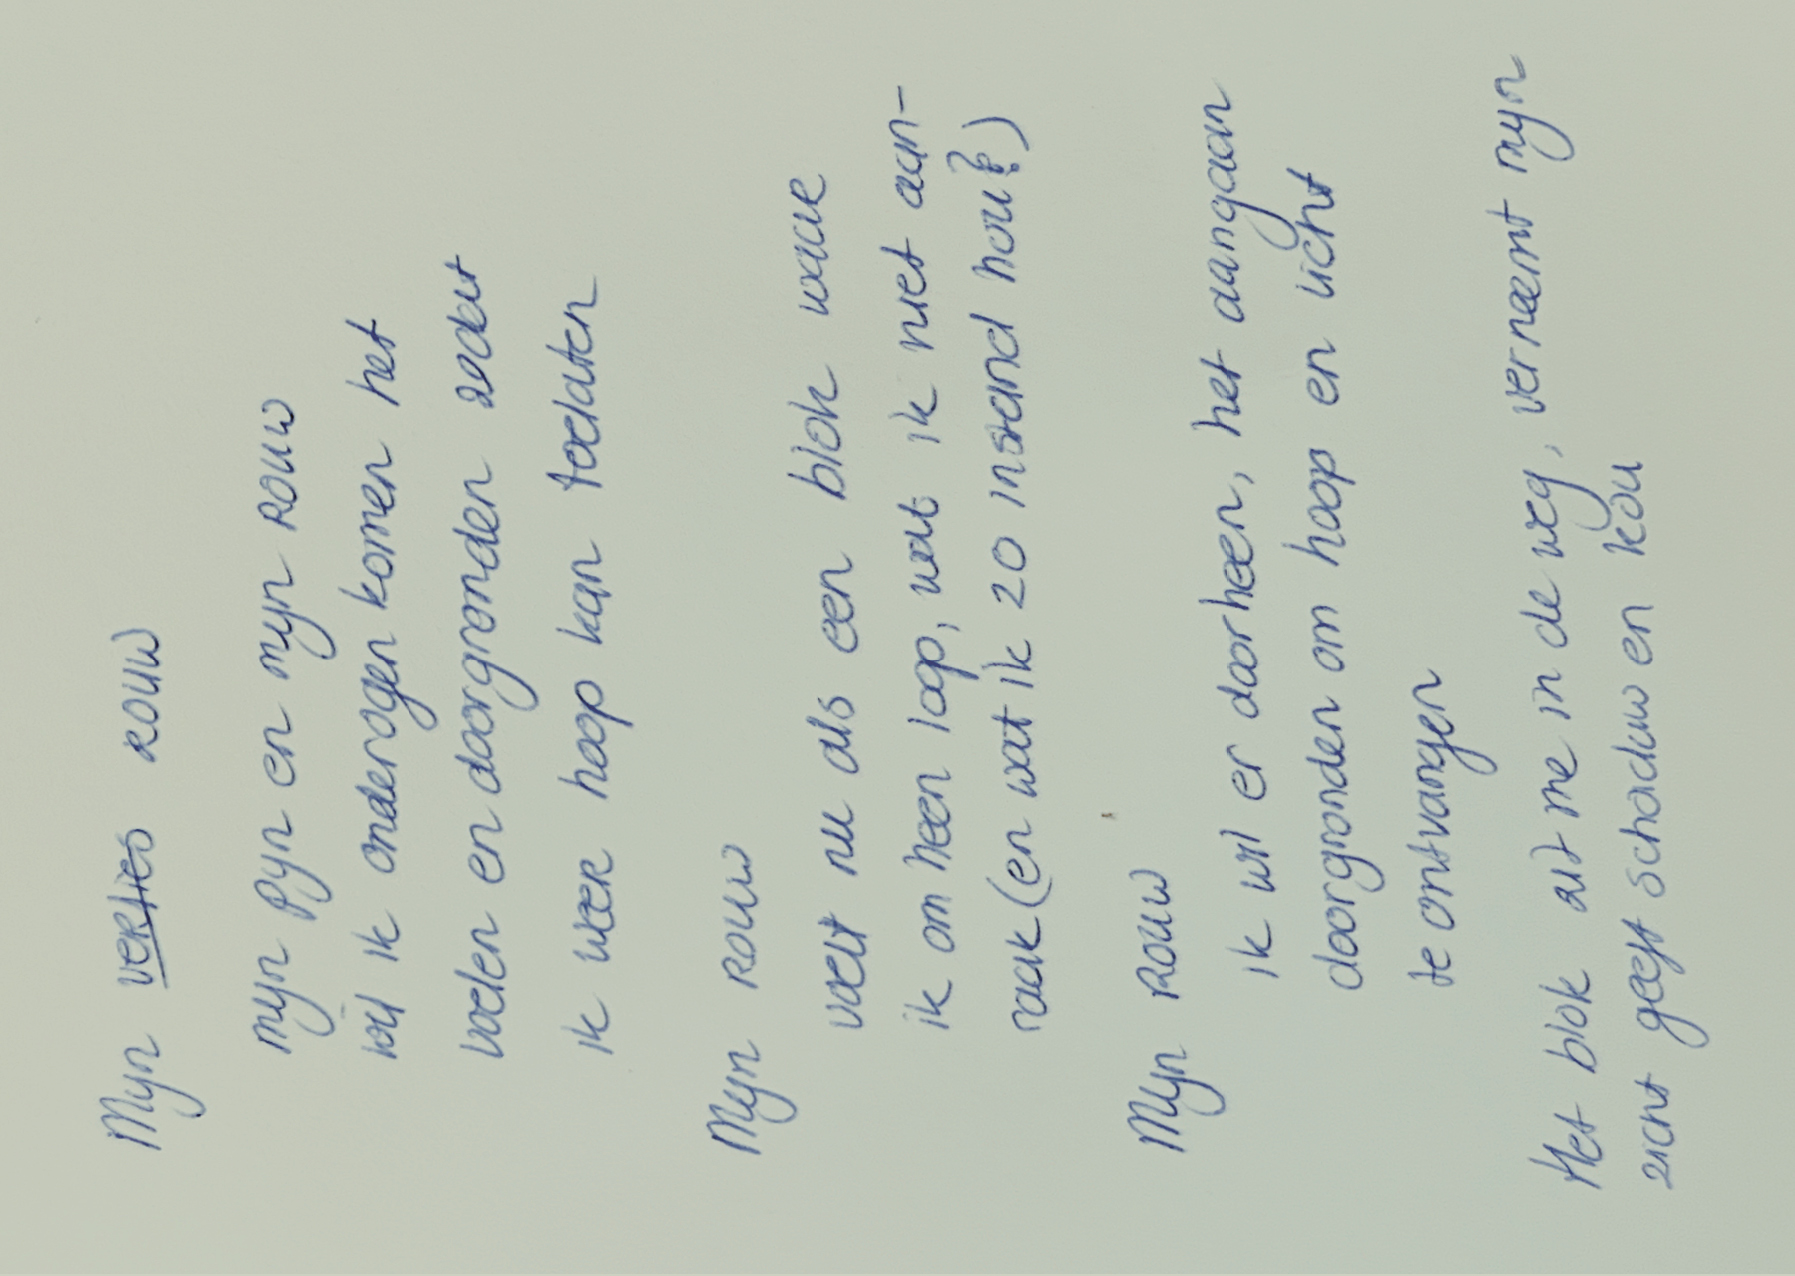 Myn verlies rouw
myn pyn en myn rouw
wil ik onderogen komen het
voelen en doorgronden zodat
ik weer hoop kan toelaten
Myn rouw
voelt nu als een blok waar
ik om heen loop, wat ik niet aan-
raak (en wat ik zo instand hou?)
Myn rouw
ik wil er doorheen, het aangaan
doorgronden om hoop en licht
te ontvangen
Het blok zit me in de weg, verneemt myn
zicht geeft schaduw en kou